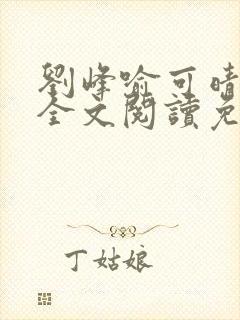 劉峰喻可晴
全文閱讀免
丁姑娘